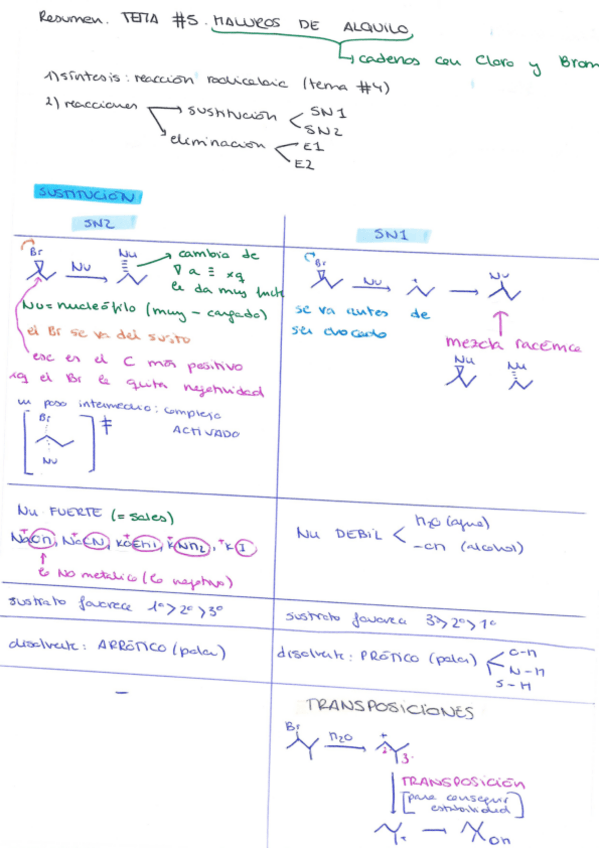 Resumen. TEMA #5. HALUROS DE ALQUILO
↳ cadenas con Cloro y Brom
1) síntesis: reacción radicalaic (tema #4)
2) reacciones
sustitución
SN1
SN2
eliminación
E1
E2
SUSTITUCIÓN
SN2
SN1
Br
Nu
Nu
cambia de
∇ a ≡ xq
le da muy fuerte
Nu = nucleófilo (muy - cargado)
el Br se va del susto
ese es el C más positivo
xq el Br le quita negatividad
un paso intermedio: complejo
ACTIVADO
Br
Nu
‡
Br
Nu
+
Nu
se va antes de
ser atacado
mezcla racémica
Nu
Nu
Nu FUERTE (= sales)
NaOH, NaCN, KOEt, KNH2, KI
↳ NO metálico (lo negativo)
Nu DEBIL
H2O (agua)
-OH (alcohol)
sustrato favorece 1º > 2º > 3º
sustrato favorece 3º > 2º > 1º
disolvente: APRÓTICO (polar)
disolvente: PRÓTICO (polar)
O-H
N-H
S-H
-
TRANSPOSICIONES
Br
H2O
+
2
3.
TRANSPOSICIÓN
[para conseguir
estabilidad]
+
OH